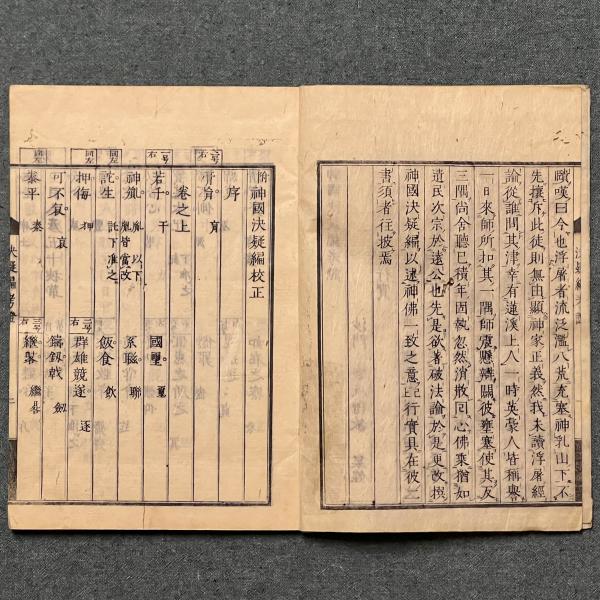 蹟嘆曰今也浮屠者流泛濫八荒充塞神乳山下不
先攘斥此徒則無由顯神家正義然我未讀浮屠經
論從誰問其津幸有蓮溪上人一時英豪人皆稱譽
一日來師所扣其一隅師震懸辨關彼壅塞使其反
三隅尚舍聽已積年固執忽然消散回心佛乘猶如
遺民次宗於遠公也先是欲著破法論於是更改撰
神國決疑編以述神佛一致之意已行實具在彼二
書須者往披焉
附 神國決疑編校正
序
卷之上
二号 右
若干 干
國璽 璽
同左
神胤 胤以下胤皆當改
系聯 聯
同左
託生 託下准之
飯食 飲
同左
押侮 押
二号 右
群雄競逐 逐
可不哀 哀
同左
泰平 泰
二号 右
繼
決疑編考證